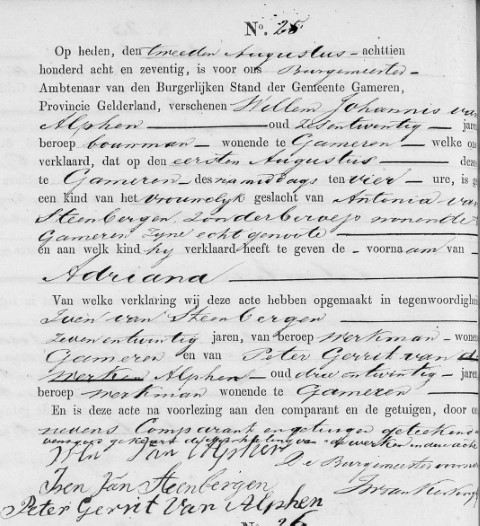 No. 25
Op heden, den tweeden Augustus achttien
honderd acht en zeventig, is voor ons Burgemeester
Ambtenaar van den Burgerlijken Stand der Gemeente Gameren,
Provincie Gelderland, verschenen Willem Johannis van
Alphen oud zesentwintig jaren
beroep bouwman wonende te Gameren welke ons
verklaard, dat op den eersten Augustus dezes
te Gameren des namiddags ten vier ure, is ge
een kind van het vrouwelyk geslacht van Antonia van
Steenbergen, zonder beroep wonende t
Gameren zyne echtgenoote
en aan welk kind hy verklaard heeft te geven de voornaam van
Adriana
Van welke verklaring wij deze acte hebben opgemaakt in tegenwoordighei
Iven van Steenbergen
zevenentwintig jaren, van beroep werkman wonen
Gameren en van Peter Gerrit van
Werken Alphen oud drieentwintig jaren
beroep werkman wonende te Gameren
En is deze acte na voorlezing aan den comparant en de getuigen, door on
nevens Comparant en getuigen geteekend
van Alphen
De Burgemeester
Iven van Steenbergen
Peter Gerrit Van Alphen
No. 26